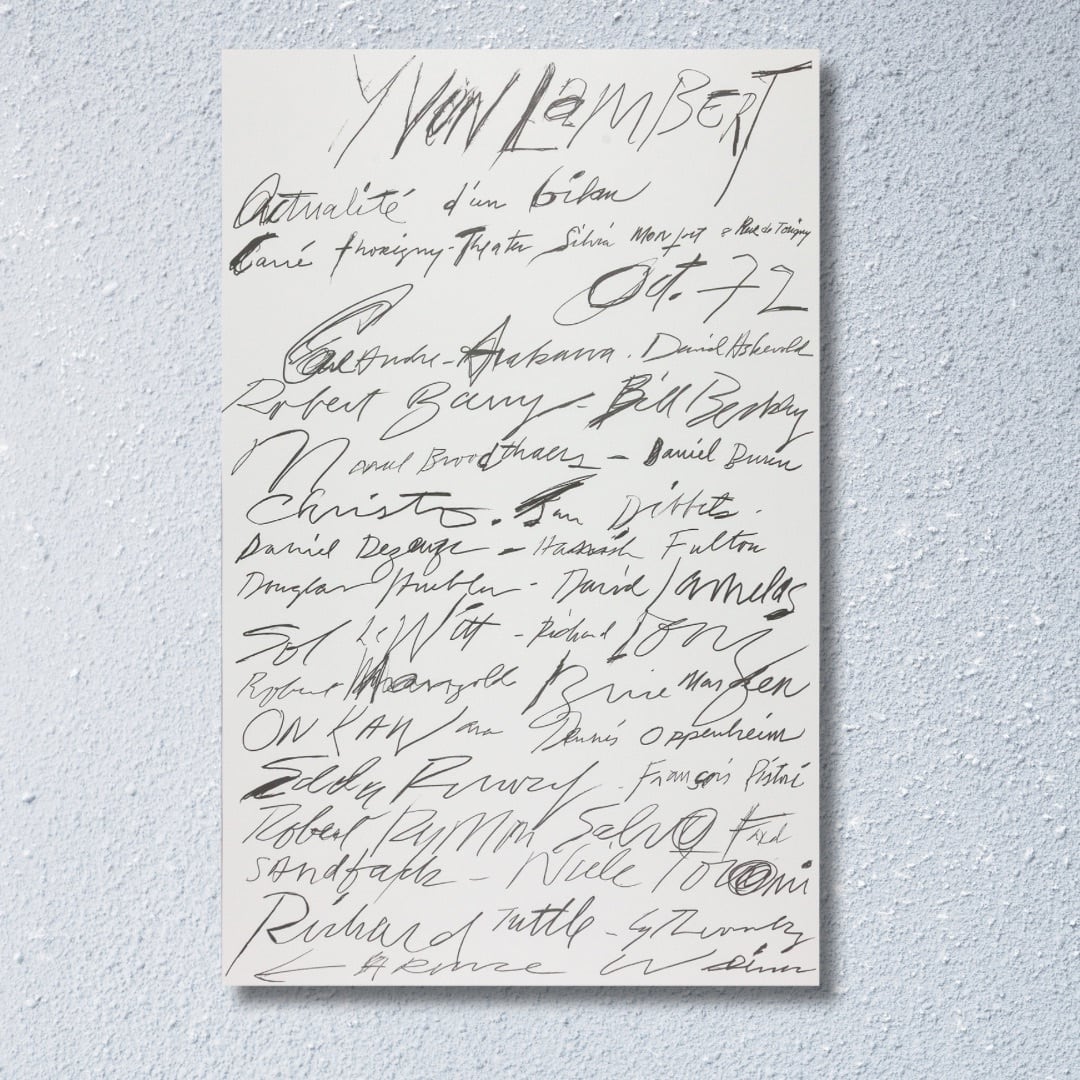 YVON LaMBERT
Actualité d'un bilan
Carré Thorigny-Theater Silvia Monfort 8 Rue de Torigny
Oct. 72
Carl Andre - Arakawa. David Askevold
Robert Barry - Bill Beckley
Marcel Broodthaers - Daniel Buren
Christo. Jan Dibbets.
Daniel Dezeuze - Hamish Fulton
Douglas Huebler - David Lamelas
Sol LeWitt - Richard Long
Robert Mangold Brice Marden
ON KAWara Dennis Oppenheim
Edda Renouf. François Ristori
Robert Ryman Salvo Fred
SANdback - Niele Toroni
Richard Tuttle - Cy Twombly
LAwrence Weiner